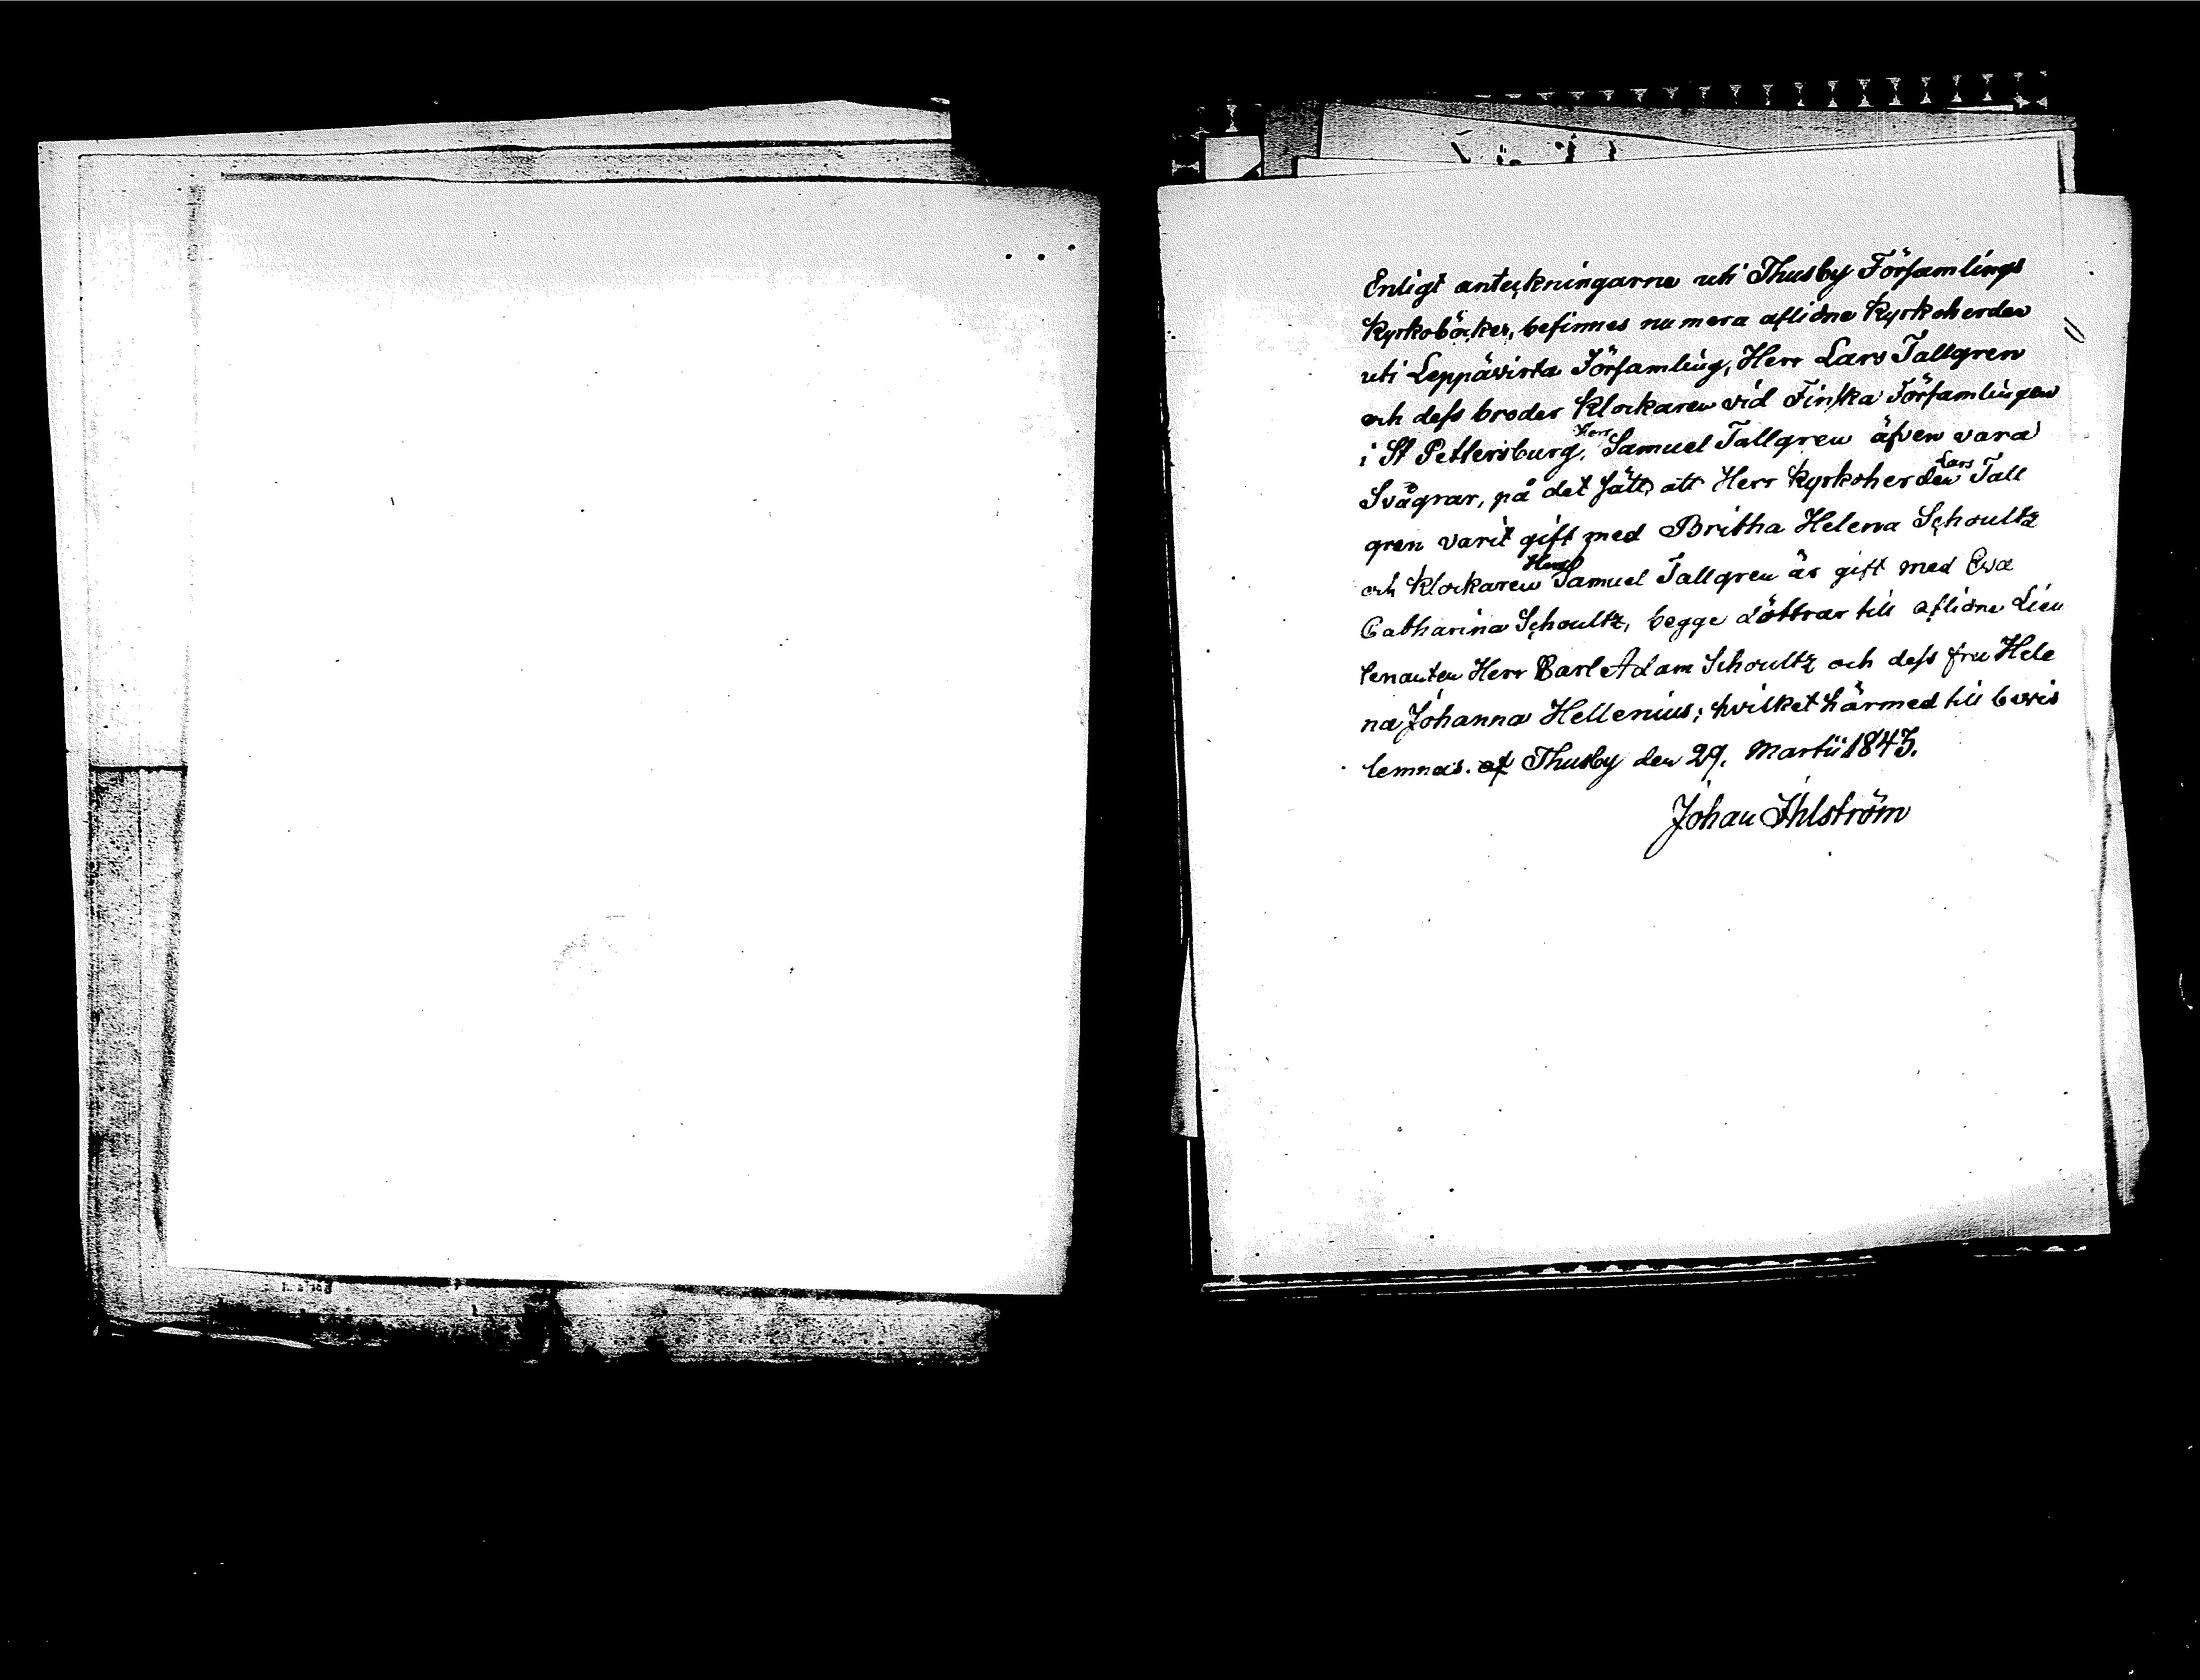 Enligt anteckningarne uti Thusby Församlings
Kyrkoböcker, befinnes numera aflidne Kyrkoherden
uti Leppävirta Församling, Herr Lars Tallgren
och dess broder Klockaren vid Finska Församlingen
i St Pettersburg, Herr Samuel Tallgren äfven vara
Svågrar, på det sätt, att Herr Kyrkoherden Lars Tall
gren varit gift med Britha Helena Schoultz
och Klockaren Herr Samuel Tallgren är gift med Ewa
Catharina Schoultz, begge döttrar till aflidne Lieu
tenanten Herr Carl Adam Schoultz och dess fru Hele
na Johanna Hellenius; hvilket härmed till bevis
lemnas. af Thusby den 29. Martii 1843.
Johan Ahlström